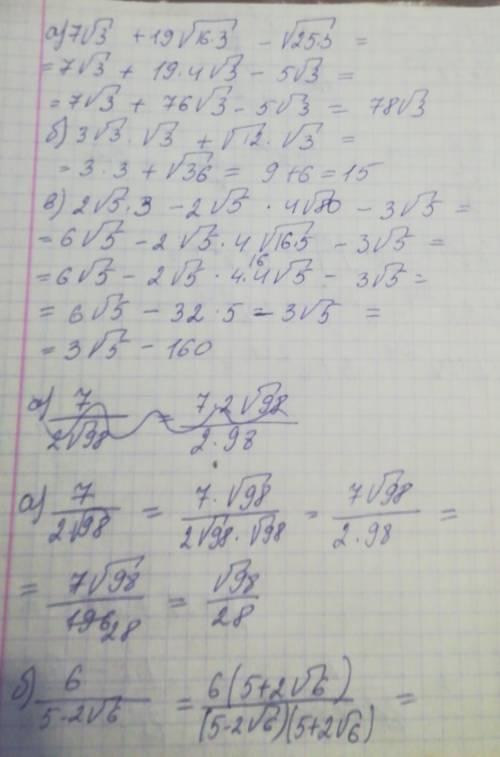 а) 7√3 + 19√16·3 - √25·3 =
= 7√3 + 19·4√3 - 5√3 =
= 7√3 + 76√3 - 5√3 = 78√3
б) 3√3 · √3 + √12 · √3 =
= 3·3 + √36 = 9+6 = 15
в) 2√5·3 - 2√5 · 4√80 - 3√5 =
= 6√5 - 2√5 · 4√16·5 - 3√5 =
= 6√5 - 2√5 · 4·4√5 - 3√5 =
= 6√5 - 32·5 - 3√5 =
= 3√5 - 160
а) 7/2√98 = 7·2√98/2·98
а) 7/2√98 = 7·√98/2√98·√98 = 7√98/2·98 =
= 7√98/196 28 = √98/28
б) 6/5-2√6 = 6(5+2√6)/(5-2√6)(5+2√6) =